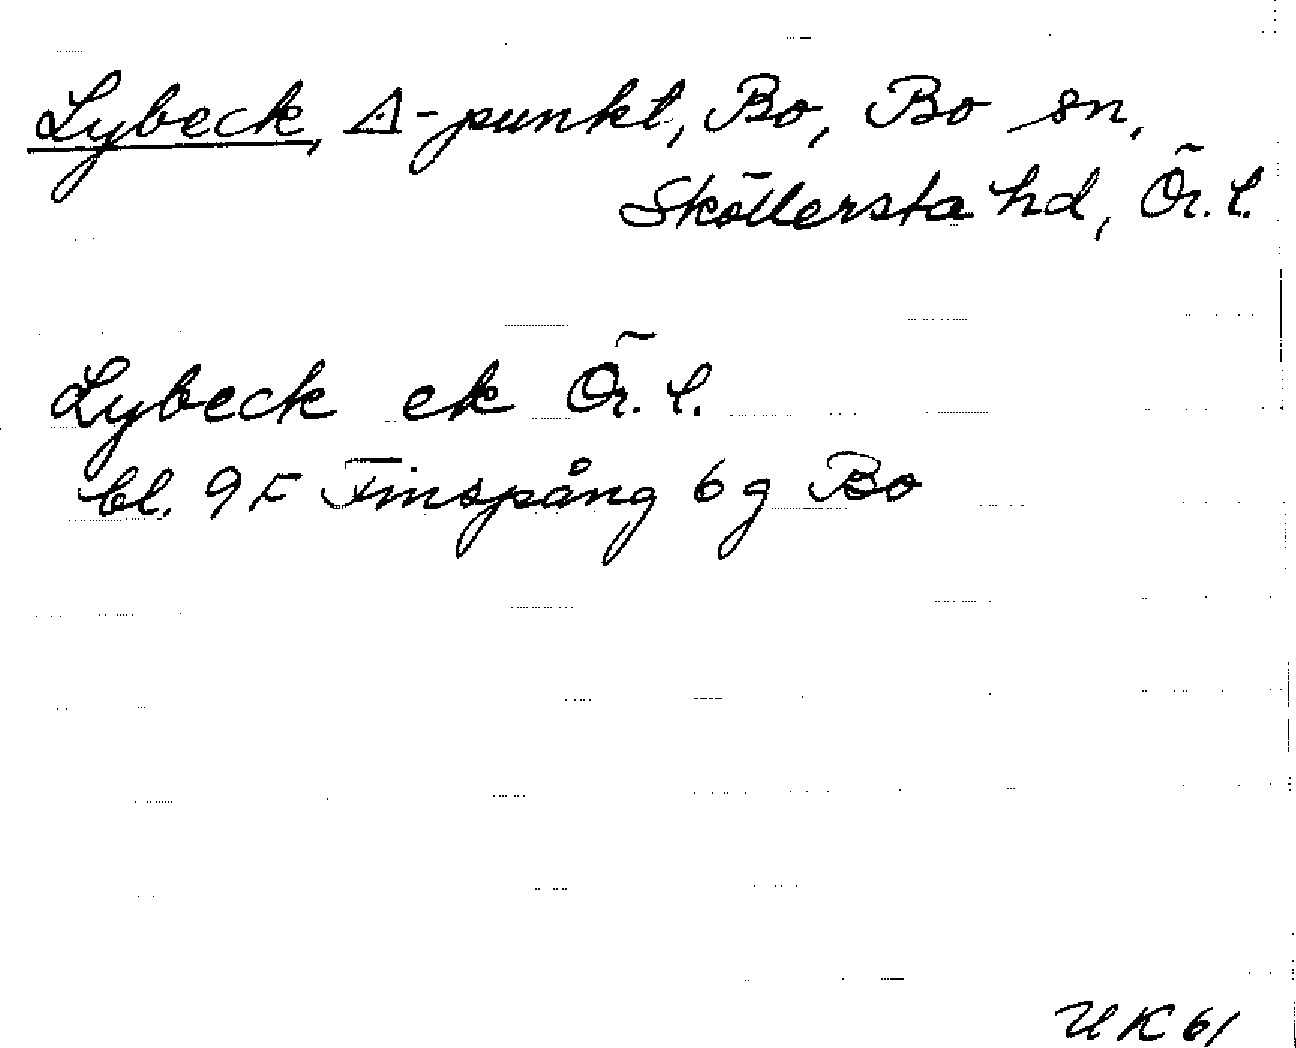 Lybeck, Δ-punkt, Bo, Bo sn,
Sköllersta hd, Ör. l.
Lybeck ek Ör. l.
bl. 9F Finspång 6g Bo
UK61